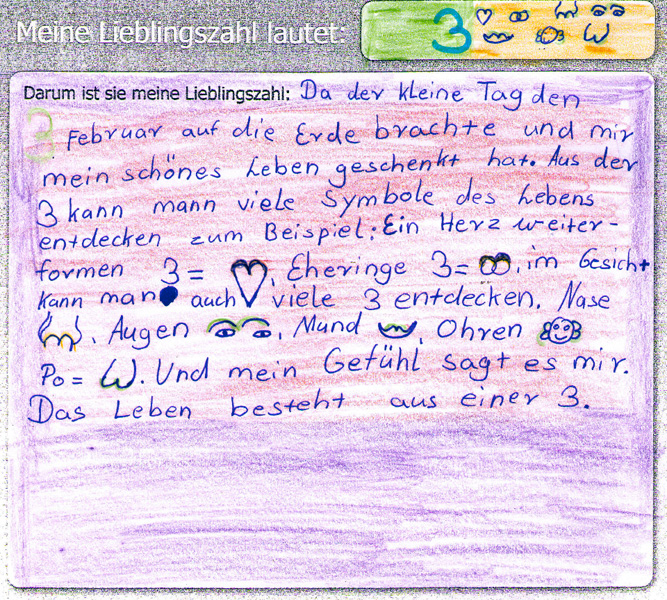 Meine Lieblingszahl lautet: 3
Darum ist sie meine Lieblingszahl: Da der kleine Tag den
3 Februar auf die Erde brachte und mir
mein schönes Leben geschenkt hat. Aus der
3 kann mann viele Symbole des Lebens
entdecken zum Beispiel: Ein Herz weiter-
formen 3 = , Eheringe 3 = , im Gesicht
kann man auch viele 3 entdecken. Nase
, Augen , Mund , Ohren
Po = . Und mein Gefühl sagt es mir.
Das Leben besteht aus einer 3.